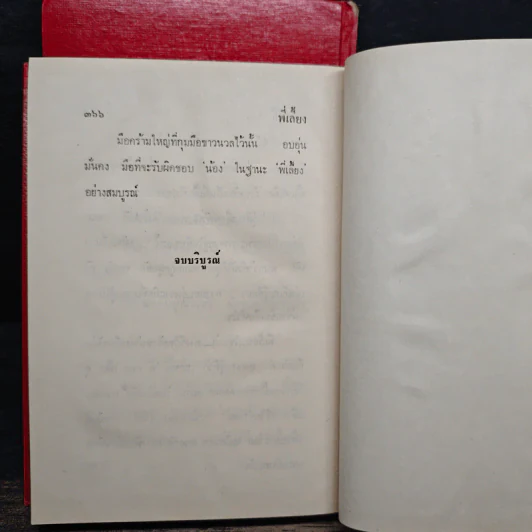 ๓๖๖ พี่เลี้ยง
มือคร้ามใหญ่ที่กุมมือขาวนวลไว้นั้น อบอุ่น
มั่นคง มือที่จะรับผิดชอบ ‘น้อง’ ในฐานะ ‘พี่เลี้ยง’
อย่างสมบูรณ์
จบบริบูรณ์